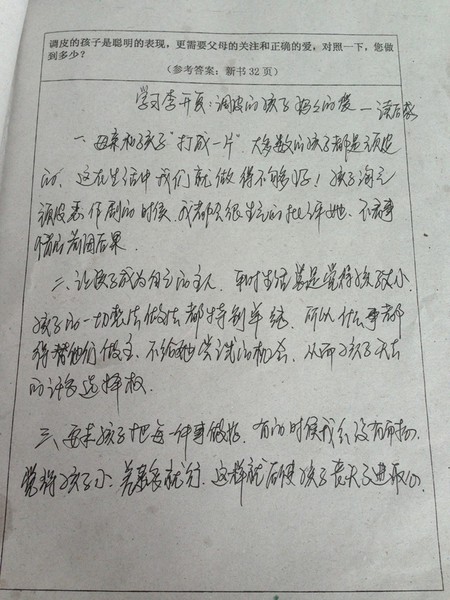 调皮的孩子是聪明的表现，更需要父母的关注和正确的爱，对照一下，您做
到多少？
（参考答案：新书32页）
学习李开复：调皮的孩子 妈妈的爱 —读后感
一、母亲和孩子“打成一片”。大多数的孩子都是顽皮
的、这在生活中我们就做得不够好！孩子淘气
顽皮恶作剧的时候、我都会很生气的批评她、不看事
情的前因后果．
二、让孩子成为自己的主人、平时生活总是觉得孩子太小．
孩子的一切想法做法都特别单纯、所以什么事都
得替他们做主、不给她选的机会、从而孩子失去
的许多选择权．
三、要求孩子把每一件事做好、有的时候我们没有
觉得孩子小、差不多就行、这样就后使孩子丧失了进取心．